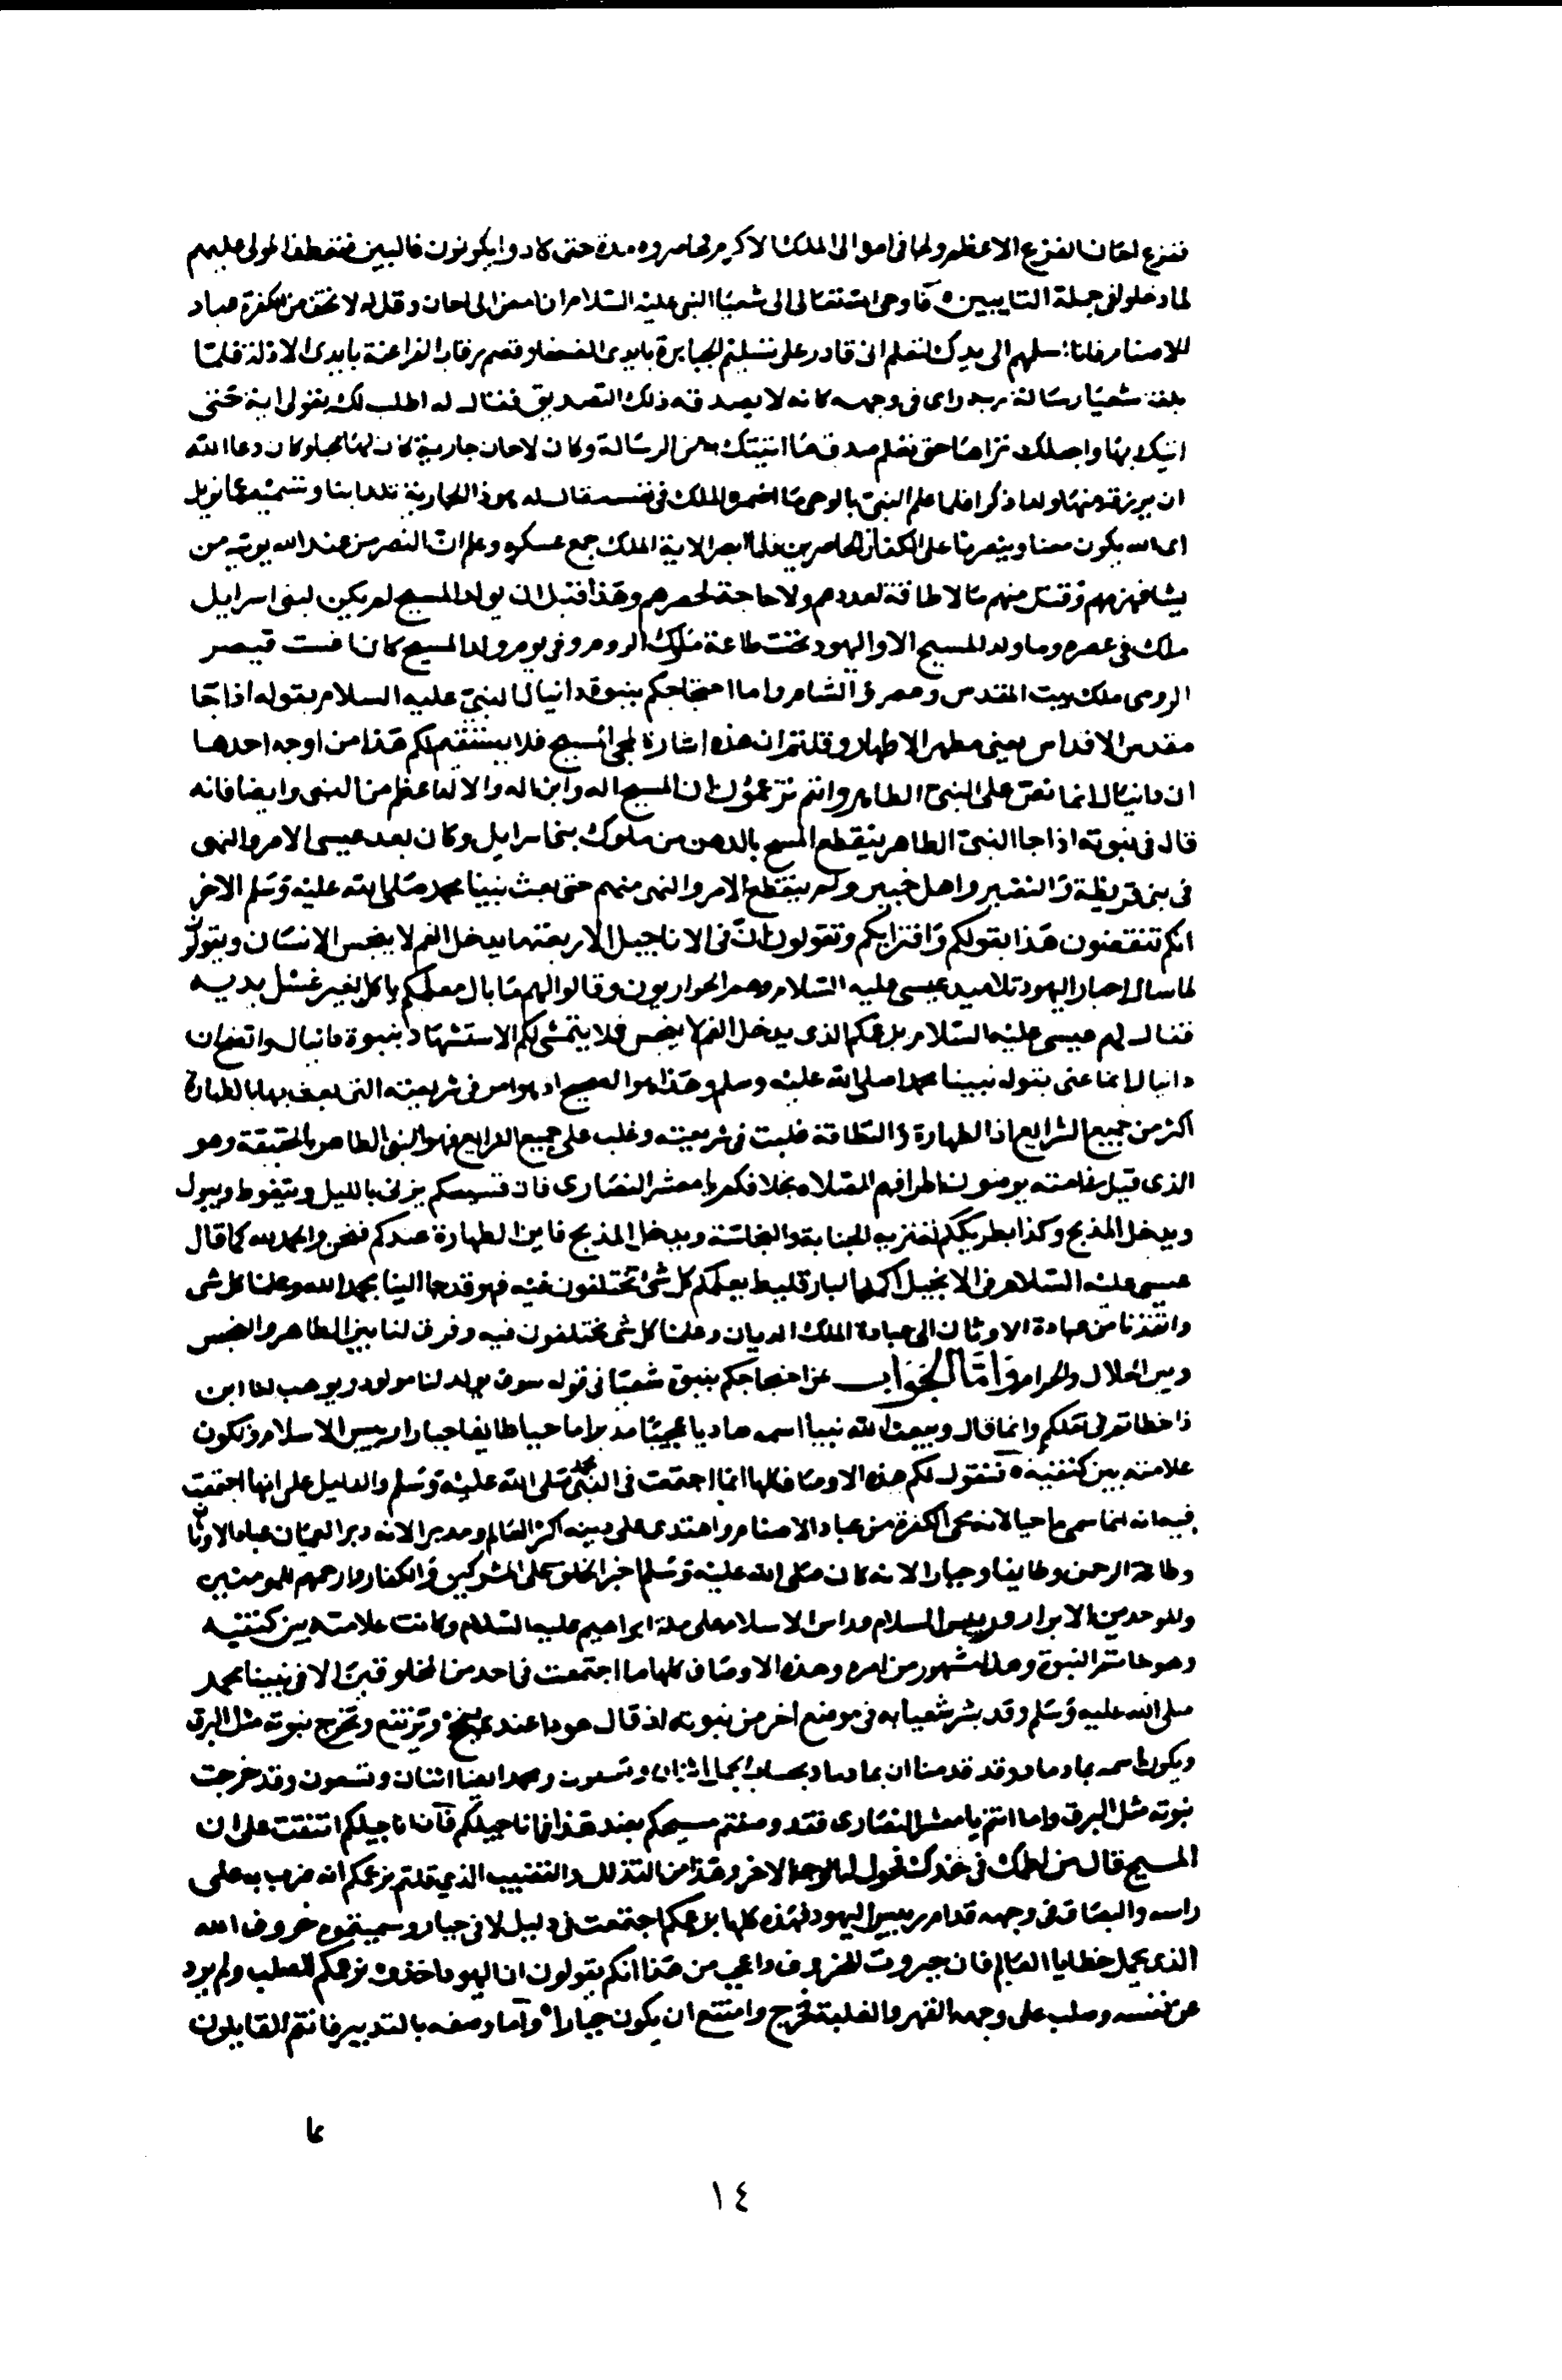 ففزع لحان الفزع الاعظم ولجا في امواله الى الملك الاكبر فحاصروه مدة حتى كادوا يكونون غالبين فتعطف المولى عليهم
لما دخلوا في جملة التايبين فاوحى الله تعالى الى شعيا النبي عليه السلام ان امض الى احان وقل له لا تخف من الكفرة عباد
للاصنام فانا اسلهم الى يدك لتعلم اني قادر على تسليم الجبابرة بايدي الضعفا وقصم رقاب الفراعنة بايدي الاذلة فلما
بلغه شعيا رسالة ربه راى في وجهه كانه لا يصدقه ذلك التصديق فقال له اطلب لك بقولي اية حتى
اتيك بها واجعلك تراها حتى تعلم صدق ما اتيتك به من الرسالة وكان لاحان جارية كان لها محبا وكان دعا الله
ان يرزقه منها ولدا ذكرا فلما علم النبي بالوحي ما اضمر الملك في نفسه قال له هوذا الجارية تلد ابنا وتسميه عمانويل
اى الله يكون معنا وينصرنا على الكفار المحاصرين فلما ابصر الاية الملك جمع عسكره وعلم ان النصر من عند الله يوتيه من
يشا فهزمهم وقتل منهم ما لا طاقة لعددهم ولا حاجة لحصرهم وهذا قبل ان يولد المسيح لم يكن لبني اسرايل
ملك في عصره وما ولد للمسيح الا واليهود تحت طاعة ملوك الروم وفي يوم ولد المسيح كان افست قيصر
الرومى ملك بيت المقدس ومصر والشام واما احتجاجكم بنبوة دانيال النبي عليه السلام بقوله اذا جا
مقدس الاقداس يعني مطهر الاطهار وقلتم ان هذه اشارة لمجي المسيح فلا يستقيم لكم هذا من اوجه احدها
ان دانيال انما نص على النبي الطاهر وانتم تزعمون ان المسيح اله وابن اله والاله اعظم من النبي وايضا فانه
قال في نبوته اذا جا النبي الطاهر ينقطع المسح بالدهن من ملوك بني اسرايل وكان بعد عيسى الامر والنهى
في بني قريظة والنضير واهل خيبر ولم ينقطع الامر والنهي منهم حتى بعث نبينا محمد صلى الله عليه وسلم الاخر
انكم تنقضون هذا بقولكم وافترايكم وتقولون ان في الاناجيل الاربعة ما يدخل الفم لا ينجس الانسان ويتولون
لما سال احبار اليهود تلاميد عيسى عليه السلام وهم الحواريون وقالوا لهم ما بال معلمكم ياكل بغير غسل يديه
فقال لهم عيسى عليه السلام بزعمكم الذى يدخل الفم لا ينجس فلا يتمشى لكم الاستشهاد بنبوة دانيال واتضح ان
دانيال انما عنى بقوله نبينا محمدا صلى الله عليه وسلم وهذا هو الصحيح اذ هو امر في شريعته التي بعث بها بالطهارة
اكثر من جميع الشرايع اذ الطهارة والنظافة غلبت في شريعته وغلب على جميع الشرايع فهو النبي الطاهر بالحقيقة وهو
الذى قيل فامته يومنون اطرافهم الصلاه بخلافكم يا معشر النصارى فان قسيسكم يزني بالليل ويتغوط ويبول
ويدخل المذبح وكذا بطريككم الجنابة والنجاسة ويدخل المذبح فاين الطهارة عندكم فنحن والحمد لله كما قال
عيسى عليه السلام في الانجيل البارقليط يعلمكم كل شي تختلفون فيه فهو قد جا الينا بحمد الله وعلمنا كل شى
وانقذنا من عبادة الاوثان الى عبادة الملك الديان وعلمنا كل شى مختلفون فيه وفرق لنا بين الطاهر والنجس
وبين الحلال والحرام واما الجواب عن احتجاجكم بنبوة شعيا في قوله سوف يولد لنا مولود ويوهب لنا ابن
فاخطاتم في نقلكم وانما قال ويبعث الله نبيا اسمه هاديا عجيبا مدبرا ماحيا طايفا جبارا رييس الاسلام وتكون
علامته بين كتفيه فنقول لكم هذه الاوصاف كلها انما اجتمعت في النبي محمد صلى الله عليه وسلم والدليل على انها اجتمعت
فيه انه انما سمى ماحيا لانه محى الكفرة من عباد الاصنام واهتدى على دينه اكثر العالم ومدبرا لانه دبر العميان عباد الاوثان
وطاعة الرحمن وطايفا وجبارا لانه كان صلى الله عليه وسلم اجبر الخلق على المشركين والكفار وارحمهم للمومنين
وللموحدين الابرار ورييس السلام وراس الاسلام على ملة ابراهيم عليه السلام وكانت علامته بين كتفيه
وهو خاتم النبوة وهذا مشهور من امره وهذه الاوصاف كلها ما اجتمعت في احد من المخلوقين الا في نبينا محمد
صلى الله عليه وسلم وقد بشر شعيا به في موضع اخر من نبوته اذ قال هوذا عندي يجي ويرتفع وتخرج نبوته مثل البرق
ويكون اسمه بماد ماد وقد قدمنا ان بماد ماد بحساب الجمل اثنان وتسعون ومحمد ايضا اثنان وتسعون وقد خرجت
نبوته مثل البرق واما انتم يا معشر النصارى فقد وصفتم مسيحكم بضد هذا في اناجيلكم فان اناجيلكم اتفقت على ان
المسيح قال من لطمك في خدك فحول له الوجه الاخر وهذا من التذلل والتغبيب الذي قلتم بزعمكم انه ضرب به على
راسه والبصاق في وجهه قدام رييس اليهود فهذه كلها بزعمكم اجتمعت في ذليل لا في جبار وسميتموه خروف الله
الذى يحمل خطايا العالم فاين جبروت للخروف واعجب من هذا انكم تقولون ان اليهود اخذوه بزعمكم الصلب ولم يرد
عن نفسه وصلب على وجه القهر والغلبة فخرج وامتنع ان يكون جبارا واما وصفه بالتدبير فانتم القايلون
عا
١٤